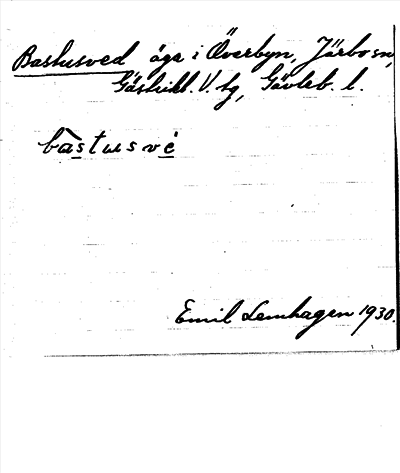 Bastusved äga i Överbyn, Järbo sn,
Gästrikl. V. tg, Gävleb. l.
bàstusvè
Emil Lemhagen 1930.